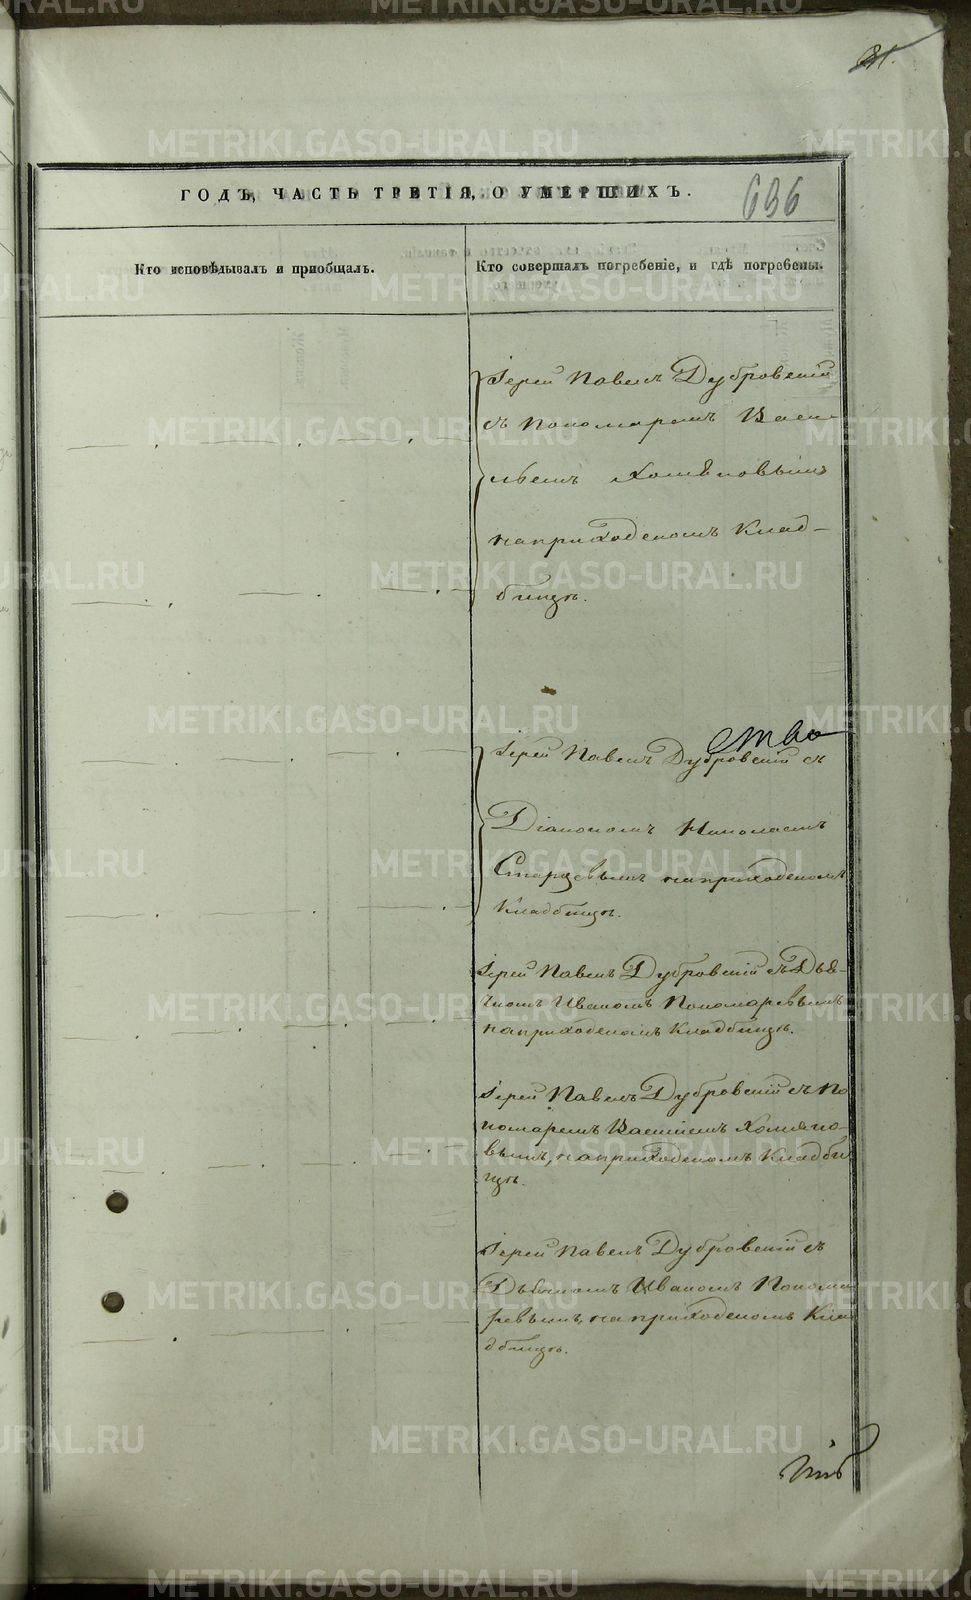 31.
ГОДЪ, ЧАСТЬ ТРЕТІЯ, О УМЕРШИХЪ.
636
Кто исповѣдывалъ и приобщалъ.
Кто совершалъ погребеніе, и гдѣ погребены.
Іерей Павелъ Дубровскій
съ Пономаремъ Васи-
льемъ Хомяковымъ
на приходскомъ Клад-
бищѣ.
ство
Іерей Павелъ Дубровскій съ
Діакономъ Николаемъ
Старцевымъ на приходскомъ
Кладбищѣ.
Іерей Павелъ Дубровскій съ Дья-
чкомъ Иваномъ Пономаревымъ
на приходскомъ Кладбищѣ.
Іерей Павелъ Дубровскій съ По
номаремъ Васильемъ Хомяко-
вымъ, на приходскомъ Кладби
щѣ.
Іерей Павелъ Дубровскій съ
Дьячкомъ Иваномъ Понома
ревымъ, на приходскомъ Кла
дбищѣ.
METRIKI.GASO-URAL.RU